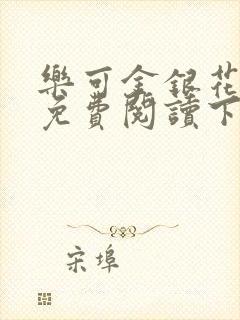 樂可金銀花
免費閱讀下
宋埠